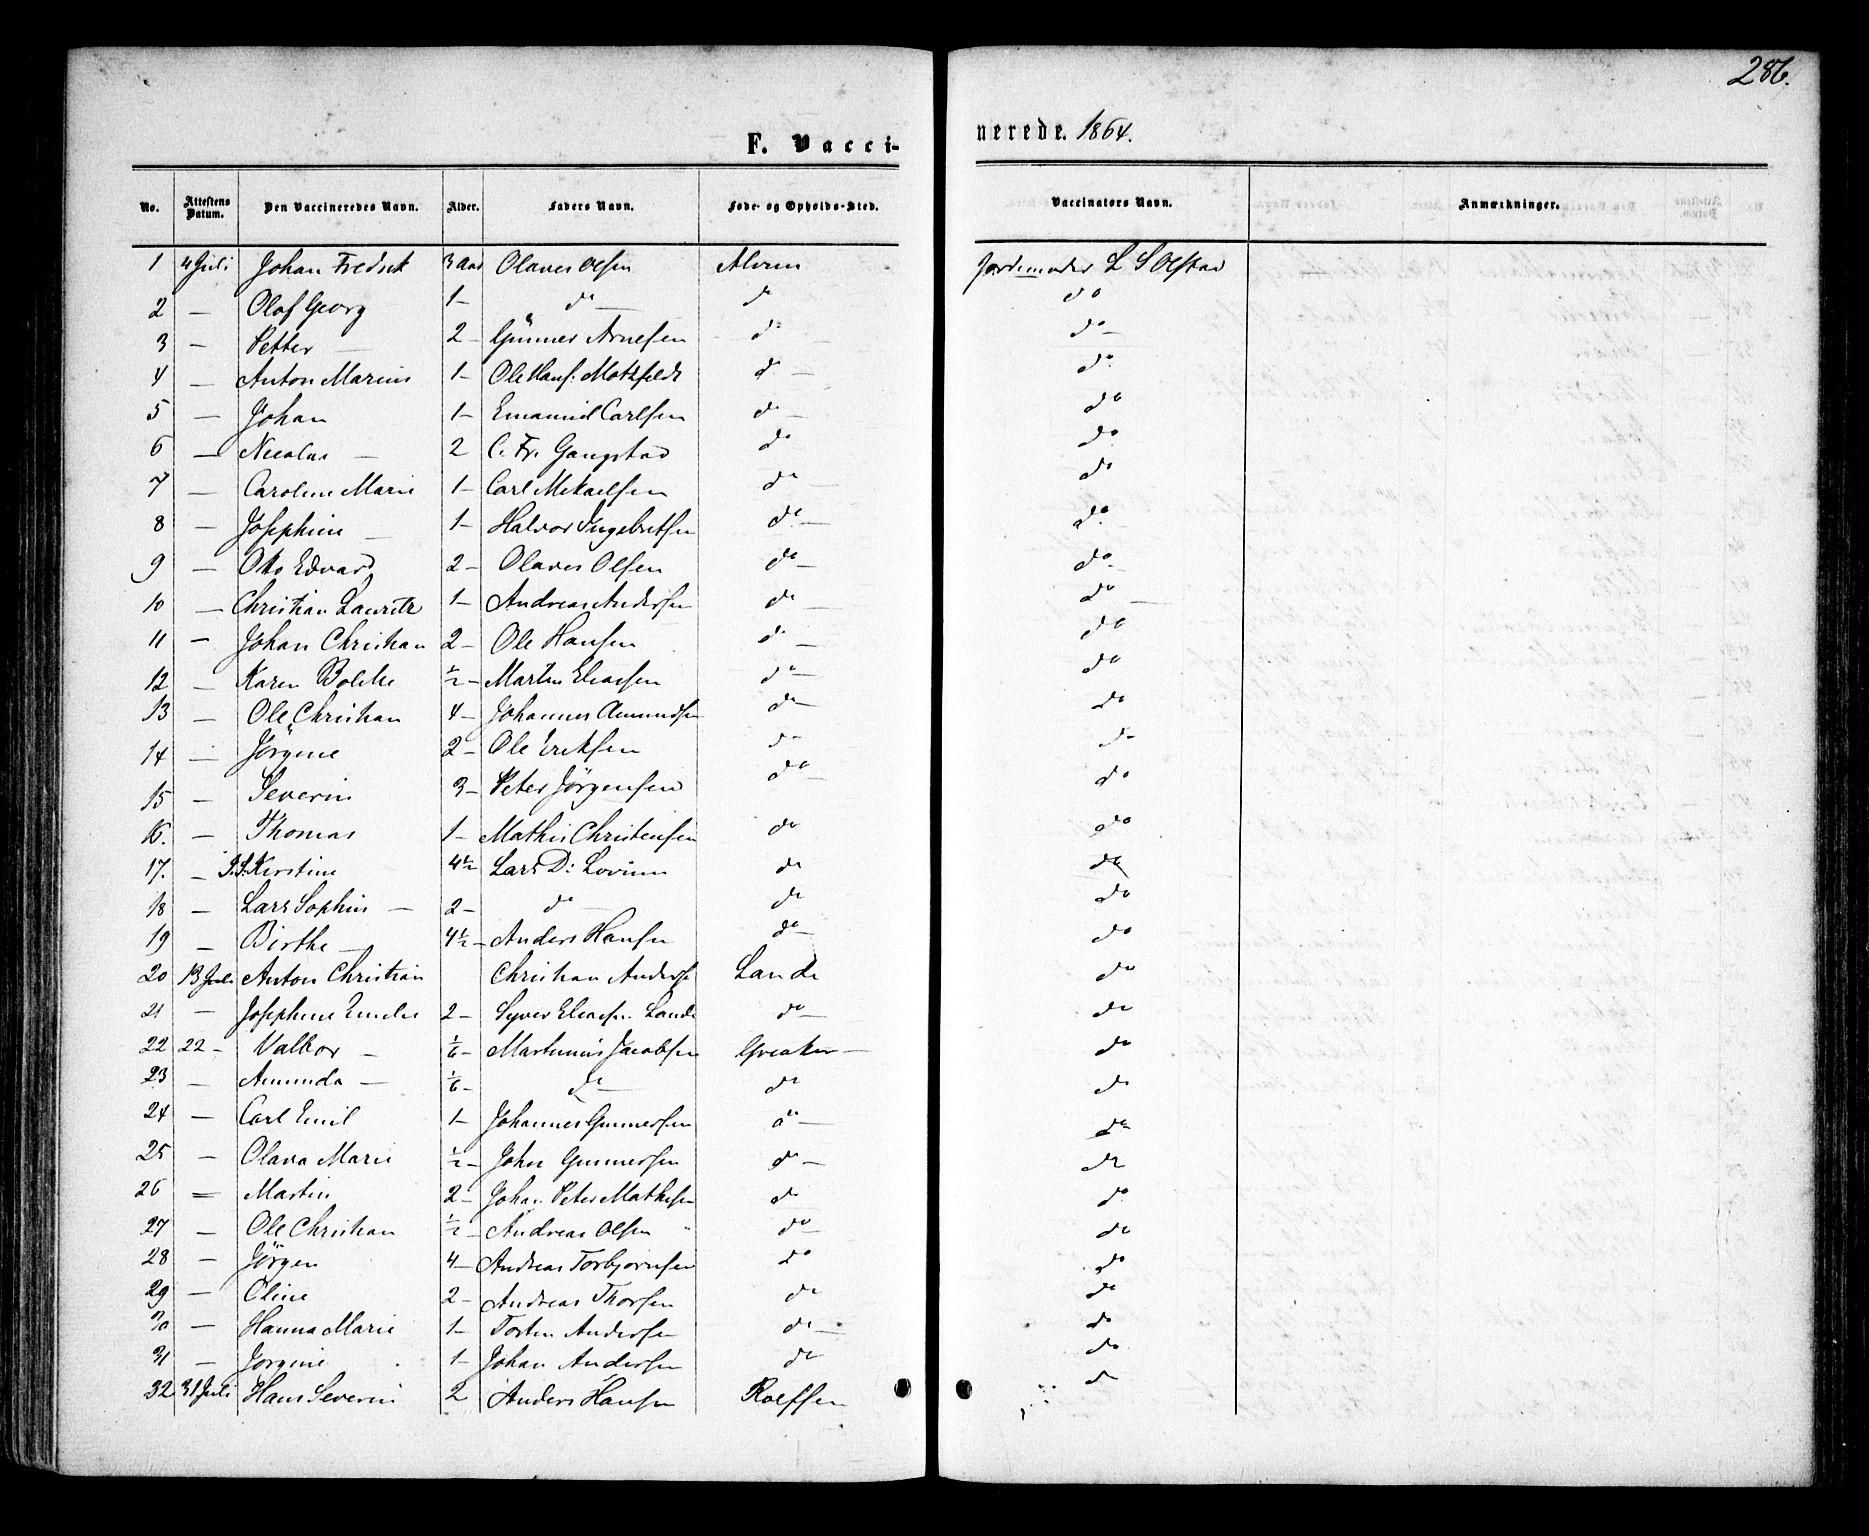 286.
F. Vaccinerede. 1864.
No. Attestens Datum. Den Vaccineredes Navn. Alder. Faders Navn. Føde- og Opholds-Sted. Vaccinators Navn. Anmærkninger.
1 4 Juli Johan Fredrik 3 Aar Olaves Olsen Alvim Jordemoder L S Olstad
2 — Olaf Georg 1 — do — do do
3 — Petter — 2 — Gunner Arnesen do do —
4 — Anton Marius 1 — Ole Hans. Motzfeldt do — do
5 — Johan 1 — Emanuel Carlsen do — do
6 — Nicolai — 2 C. Fr. Gangstad do do
7 — Caroline Marie 1 — Carl Mikaelsen do — do
8 — Josephine — 1 — Halvor Ingebretsen do — do
9 — Otto Edvard 2 — Olaves Olsen do — do
10 — Christian Lauritz 1 — Andreas Andersen do — do —
11 — Johan Christian 2 — Ole Hansen do — do
12 — Karen Bolette ½ — Martin Eliasen do — do
13 — Ole Christian 4 — Johannes Amundsen do — do
14 — Jörgine 2 — Ole Eriksen do do
15 — Severin 3 — Peter Jörgensen do — do
16. — Thomas 1 — Mathis Christensen do do
17. — Kirstine 4½ Lars D: do do
18 — Lars Sophus — 2 — do — do do
19 — Birthe — 4½ — Anders Hansen do — do
20 13 Juli Anton Christian Christian Anders Lande do
21 — Josephine Emilie 2 — Syver Eliasen Lande do — do
22 22 — Valbor — 1/6 — Martinius Jacobsen Greaker — do
23 — Amunda — 1/6 — do — do do
24 — Carl Emil 1 — Johannes Gunnersen do — do
25 — Olava Marie ½ — Johan Gunnersen do — do
26 — Martin 2 — Johan Peter Mathisen do do
27 — Ole Christian ½ — Andreas Olsen do — do
28 — Jörgen 4 — Andreas Torbjornsen do do
29 — Oline 2 — Andreas Thorsen do do
30 — Hanna Marie 1 — Torsten Andersen do — do
31 — Jorgine 1 — Johan Andersen do do
32 31 Juli Hans Severin 2 Anders Hansen Rolfsen do